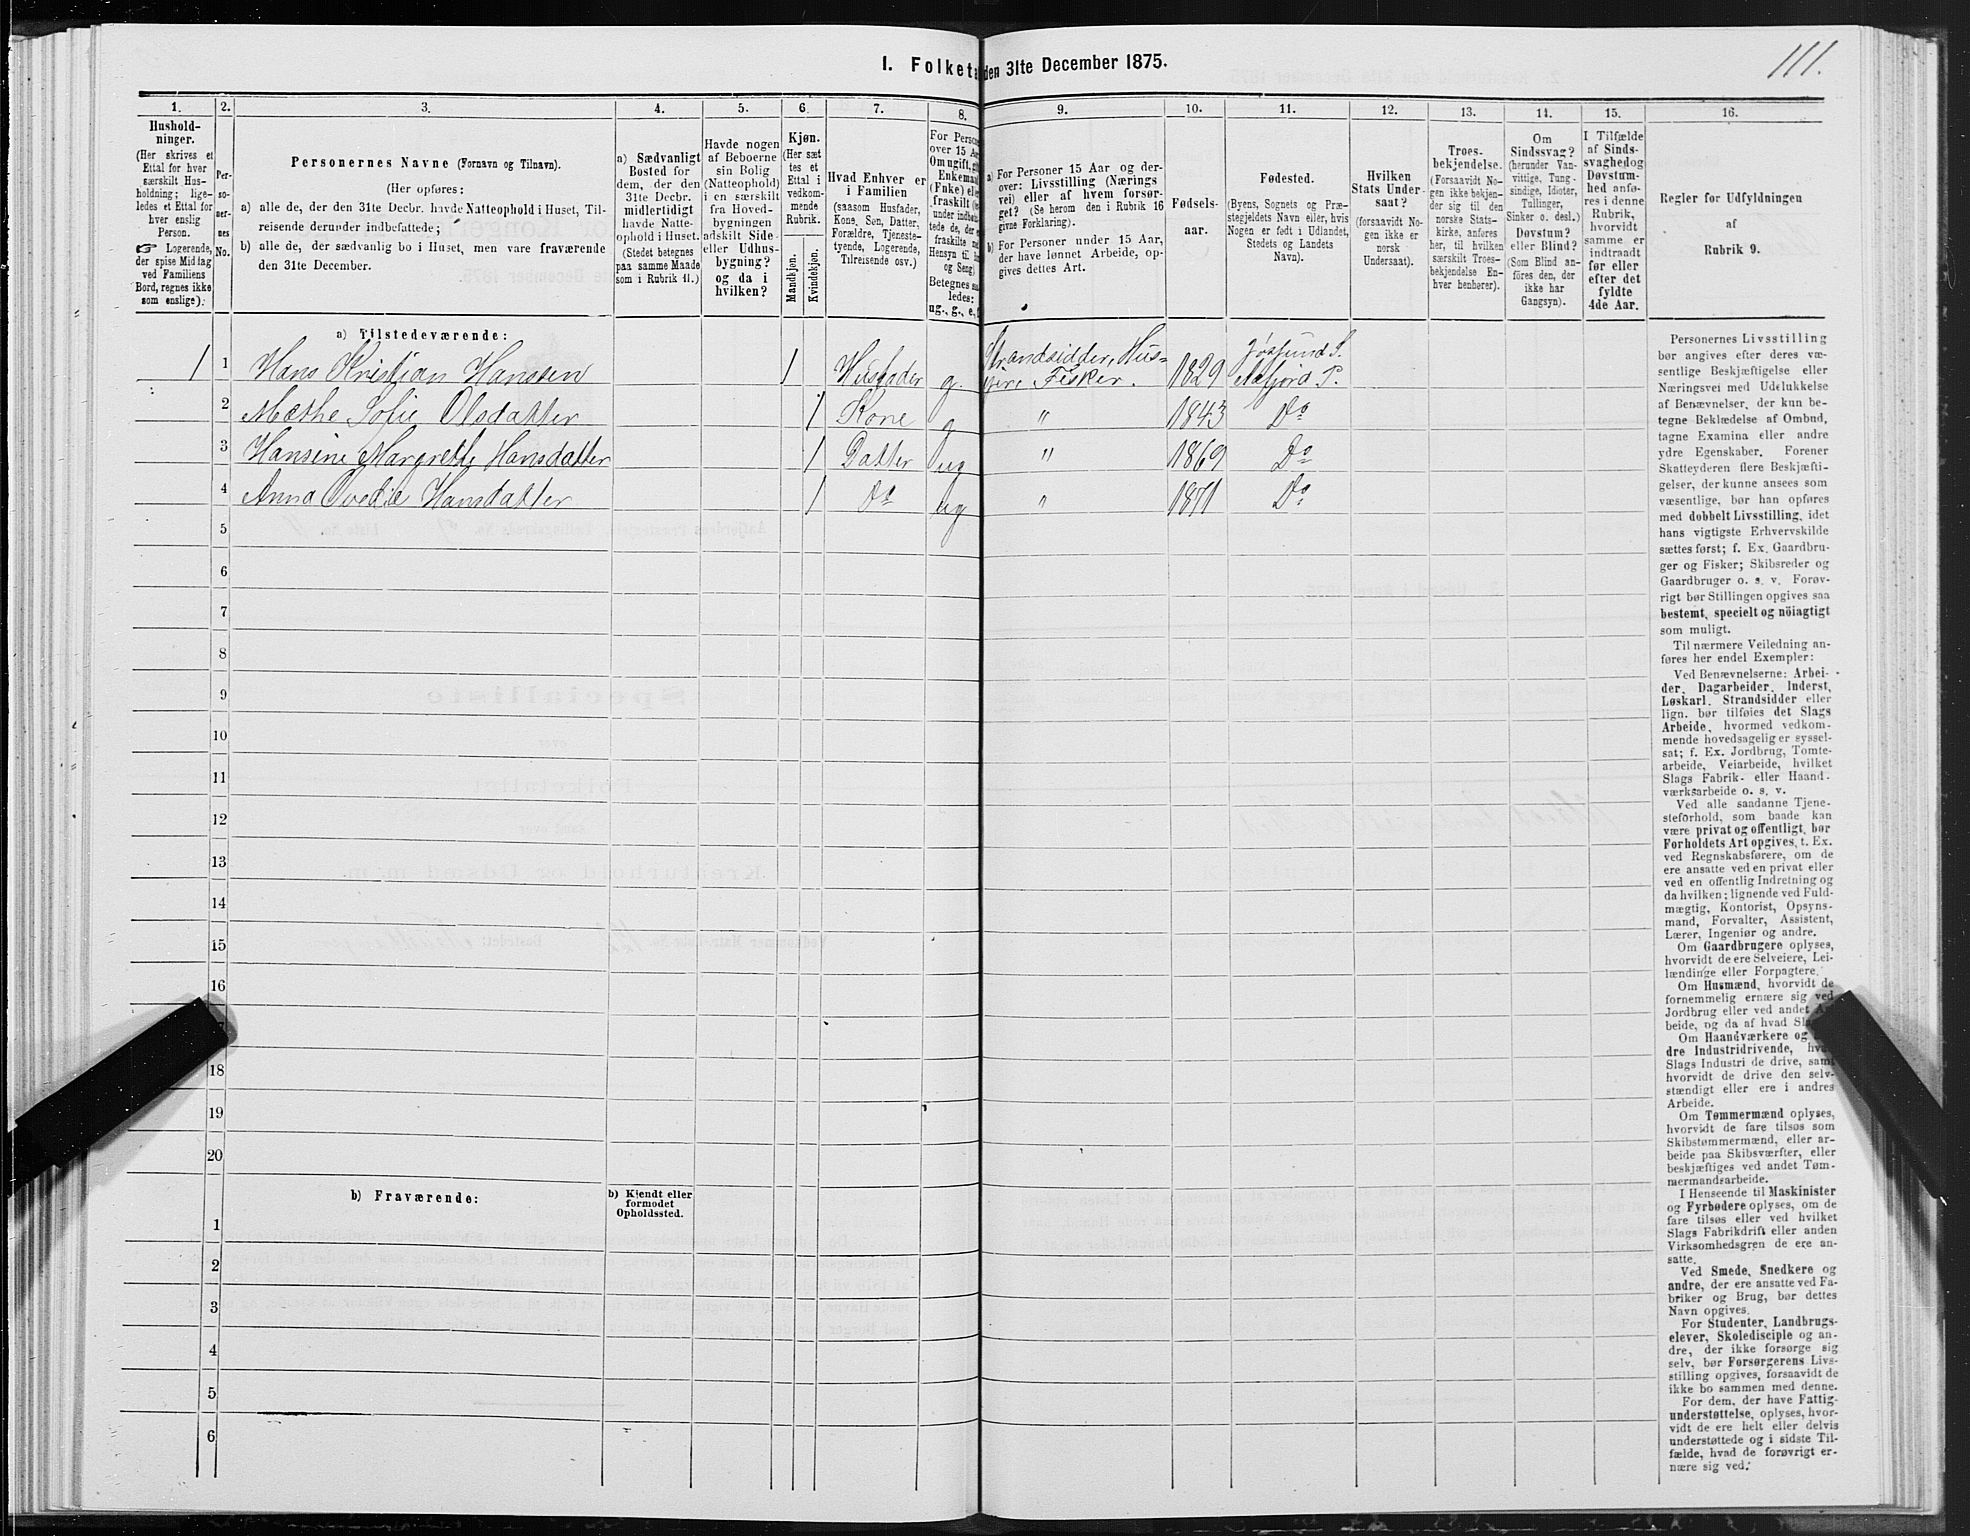 111.
I. Folketa den 31te December 1875.
1. 2. 3. 4. 5. 6. 7. 8. 9. 10. 11. 12. 13. 14. 15. 16.
Hushold-
ninger.
(Her skrives et
Ettal for hver
særskilt Hus-
holdning; lige-
ledes et Ettal for
hver enslig
Person.
☞ Logerende,
der spise Middag
ved Familiens
Bord, regnes ikke
som enslige).
Per-
so-
ner-
nes
No.
Personernes Navne (Fornavn og Tilnavn).
(Her opføres:
a) alle de, der den 31te Decbr. havde Natteophold i Huset, Til-
reisende derunder indbefattede;
b) alle de, der sædvanlig bo i Huset, men vare fraværende
den 31te December.
a) Sædvanligt
Bosted for
dem, der den
31te Decbr.
midlertidigt
havde Natte-
ophold i Huset.
(Stedet betegnes
paa samme Maade
som i Rubrik 11.)
Havde nogen
af Beboerne
sin Bolig
(Natteophold)
i en særskilt
fra Hoved-
bygningen
adskilt Side-
eller Udhus-
bygning?
og da i
hvilken?
Kjøn.
(Her sæt
tes et
Ettal i
vedkom-
mende
Rubrik.
Mandkjøn.
Kvindekjøn.
Hvad Enhver er
i Familien
(saasom Husfader,
Kone, Søn, Datter,
Forældre, Tjeneste-
tyende, Logerende,
Tilreisende osv.)
For Person
over 15 Aa
Om ugift, gi
Enkeman
(Fnke) ell
fraskilt (
under indbe
tede de, de
fraskilte m
Hensyn til B
og Seng)
Betegnes saa
ledes:
ug., g., e., f
a) For Personer 15 Aar og der-
over: Livsstilling (Nærings
vei) eller af hvem forsør-
get? (Se herom den i Rubrik 16
givne Forklaring).
b) For Personer under 15 Aar,
der have lønnet Arbeide, op-
gives dettes Art.
Fødsels-
aar.
Fødested.
(Byens, Sognets og Præ-
stegjeldets Navn eller, hvis
Nogen er født i Udlandet,
Stedets og Landets
Navn).
Hvilken
Stats Under-
saat?
(forsaavidt No-
gen ikke er
norsk
Undersaat).
Troes-
bekjendelse.
(Forsaavidt No-
gen ikke bekjen-
der sig til den
norske Stats-
kirke, anføres
her, til hvilken
særskilt Troes-
bekjendelse En-
hver henhører).
Om
Sindssvag?
(herunder Van-
vittige, Tung-
sindige, Idioter,
Tullinger,
Sinker o. desl.)
Døvstum?
eller Blind?
(Som Blind an-
føres den, der
ikke har
Gangsyn).
I Tilfælde
af Sinds-
svaghedog
Døvstum-
hed anfø-
res i denne
Rubrik,
hvorvidt
samme er
indtraadt
før eller
efter det
fyldte
4de Aar.
Regler for Udfyldningen
af
Rubrik 9.
a) Tilstedeværende:
1 1 Hans Kristian Hanssen 1 Husfader g. Strandsidder, Hus-
eier, Fisker. 1829 Jøssund S.
Aafjord P.
2 Mæthe Sofie Olsdatter 1 Kone g " 1843 Do
3 Hansine Margrethe Hansdatter 1 Datter ug " 1869 Do
4 Anna Ovedie Hansdatter 1 Do ug " 1871 Do
5
6
7
8
9
10
11
12
13
14
15
16
18
19
20
b) Fraværende:
b) Kjendt eller
formodet
Opholdssted.
1
2
3
4
5
6
Personernes Livsstilling
bør angives efter deres væ-
sentlige Beskjæftigelse eller
Næringsvei med Udelukkelse
af Benævnelser, der kun be-
tegne Beklædelse af Ombud,
tagne Examina eller andre
ydre Egenskaber. Forener
Skatteyderen flere Beskjæfti-
gelser, der kunne ansees som
væsentlige, bør han opføres
med dobbelt Livsstilling, idet
hans vigtigste Erhvervskilde
sættes først; f. Ex. Gaardbru-
ger og Fisker; Skibsreder og
Gaardbruger o. s. v. Forøv-
rigt bør Stillingen opgives saa
bestemt, specielt og nöiagtigt
som muligt.
Til nærmere Veiledning an-
føres her endel Exempler:
Ved Benævnelserne: Arbei-
der, Dagarbeider, Inderst,
Løskarl, Strandsidder eller
lign. bør tilføies det Slags
Arbeide, hvormed vedkom-
mende hovedsagelig er syssel-
sat; f. Ex. Jordbrug, Tomte-
arbeide, Veiarbeide, hvilket
Slags Fabrik- eller Haand-
værksarbeide o. s. v.
Ved alle saadanne Tjene-
steforhold, som baade kan
være privat og offentligt, bør
Forholdets Art opgives, t. Ex.
ved Regnskabsførere, om de
ere ansatte ved en privat eller
ved en offentlig Indretning og
da hvilken; lignende ved Fuld-
mægtig, Kontorist, Opsyns-
mand, Forvalter, Assistent,
Lærer, Ingeniør og andre.
Om Gaardbrugere oplyses,
hvorvidt de ere Selveiere, Lei-
lændinge eller Forpagtere.
Om Husmænd, hvorvidt de
fornemmelig ernære sig ved
Jordbrug eller ved andet Ar
beide, og da af hvad Sl
Om Haandværkere og
dre Industridrivende, hva
Slags Industri de drive, samt
hvorvidt de drive den selv-
stændigt eller ere i andres
Arbeide.
Om Tømmermænd oplyses,
hvorvidt de fare tilsøs som
Skibstømmermænd, eller ar-
beide paa Skibsværfter, eller
beskjæftiges ved andet Tøm-
mermandsarbeide.
I Henseende til Maskinister
og Fyrbødere oplyses, om de
fare tilsøs eller ved hvilket
Slags Fabrikdrift eller anden
Virksomhedsgren de ere an-
satte.
Ved Smede, Snedkere og
andre, der ere ansatte ved Fa-
briker og Brug, bør dettes
Navn opgives.
For Studenter, Landbrugs-
elever, Skoledisciple og an-
dre, der ikke forsørge sig
selv, bør Forsørgerens Livs-
stilling opgives, forsaavidt de
ikke bo sammen med denne.
For dem, der have Fattig-
understøttelse, oplyses, hvor-
vidt de ere helt eller delvis
understøttede og i sidste Til-
fælde, hvad de forøvrigt er-
nære sig ved.